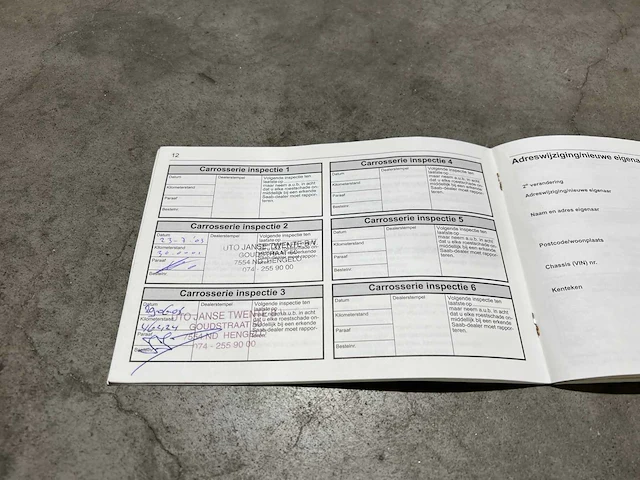 12
Carrosserie inspectie 1
Datum
Dealerstempel
Kilometerstand
Paraaf
Bestelnr.
Volgende inspectie ten
laatste op
maar neem a.u.b. in acht
dat u elke roestschade on-
middellijk bij een erkende
Saab-dealer moet rappor-
teren.
Carrosserie inspectie 2
Datum
Dealerstempel
Kilometerstand
Paraaf
Bestelnr.
Volgende inspectie ten
laatste op
UTO JANSE TWENTE B.V.
GOUDSTRAAT
7554 ND HENGELO
074 - 255 90 00
Saab-dealer moet rappor-
teren.
Carrosserie inspectie 3
Datum
Dealerstempel
Kilometerstand
Paraaf
Bestelnr.
Volgende inspectie ten
laatste op
UTO JANSE TWENTE
GOUDSTRAAT
7554 ND HENGELO
074 - 255 90 00
dat u elke roestschade on-
middellijk bij een erkende
Saab-dealer moet rappor-
teren.
Carrosserie inspectie 4
Datum
Dealerstempel
Kilometerstand
Paraaf
Bestelnr.
Volgende inspectie ten
laatste op
maar neem a.u.b. in acht
dat u elke roestschade on-
middellijk bij een erkende
Saab-dealer moet rappor-
teren.
Carrosserie inspectie 5
Datum
Dealerstempel
Kilometerstand
Paraaf
Bestelnr.
Volgende inspectie ten
laatste op
maar neem a.u.b. in acht
dat u elke roestschade on-
middellijk bij een erkende
Saab-dealer moet rappor-
teren.
Carrosserie inspectie 6
Datum
Dealerstempel
Kilometerstand
Paraaf
Bestelnr.
Volgende inspectie ten
laatste op
maar neem a.u.b. in acht
dat u elke roestschade on-
middellijk bij een erkende
Saab-dealer moet rappor-
teren.
Adreswijziging/nieuwe eigena
2e verandering
Adreswijziging/nieuwe eigenaar
Naam en adres eigenaar
Postcode/woonplaats
Chassis (VIN) nr.
Kenteken